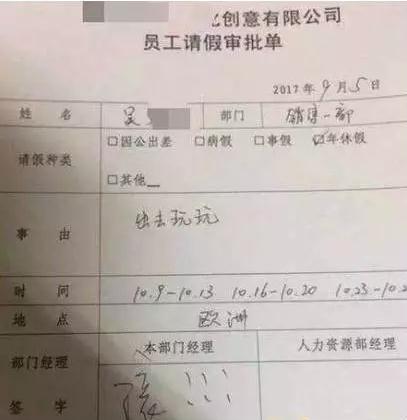 创意有限公司
员工请假审批单
2017年9月5日
姓 名 吴 部门 销售一部
请假种类 □因公出差 □病假 □事假 ☑年休假
□其他
事 由 出去玩玩
时 间 10.9-10.13 10.16-10.20 10.23-10.2
地 点 欧洲
部门经理 本部门经理 人力资源部经理
签 字